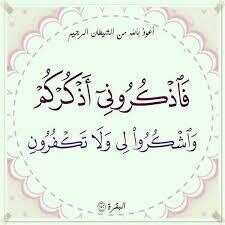 أعوذ بالله من الشيطان الرجيم
فَٱذْكُرُونِىٓ أَذْكُرْكُمْ
وَٱشْكُرُوا۟ لِى وَلَا تَكْفُرُونِ
البقرة